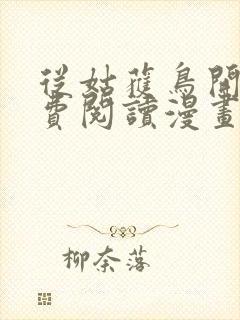 從姑蘿鳥開
費閱讀漫畫
柳奈落